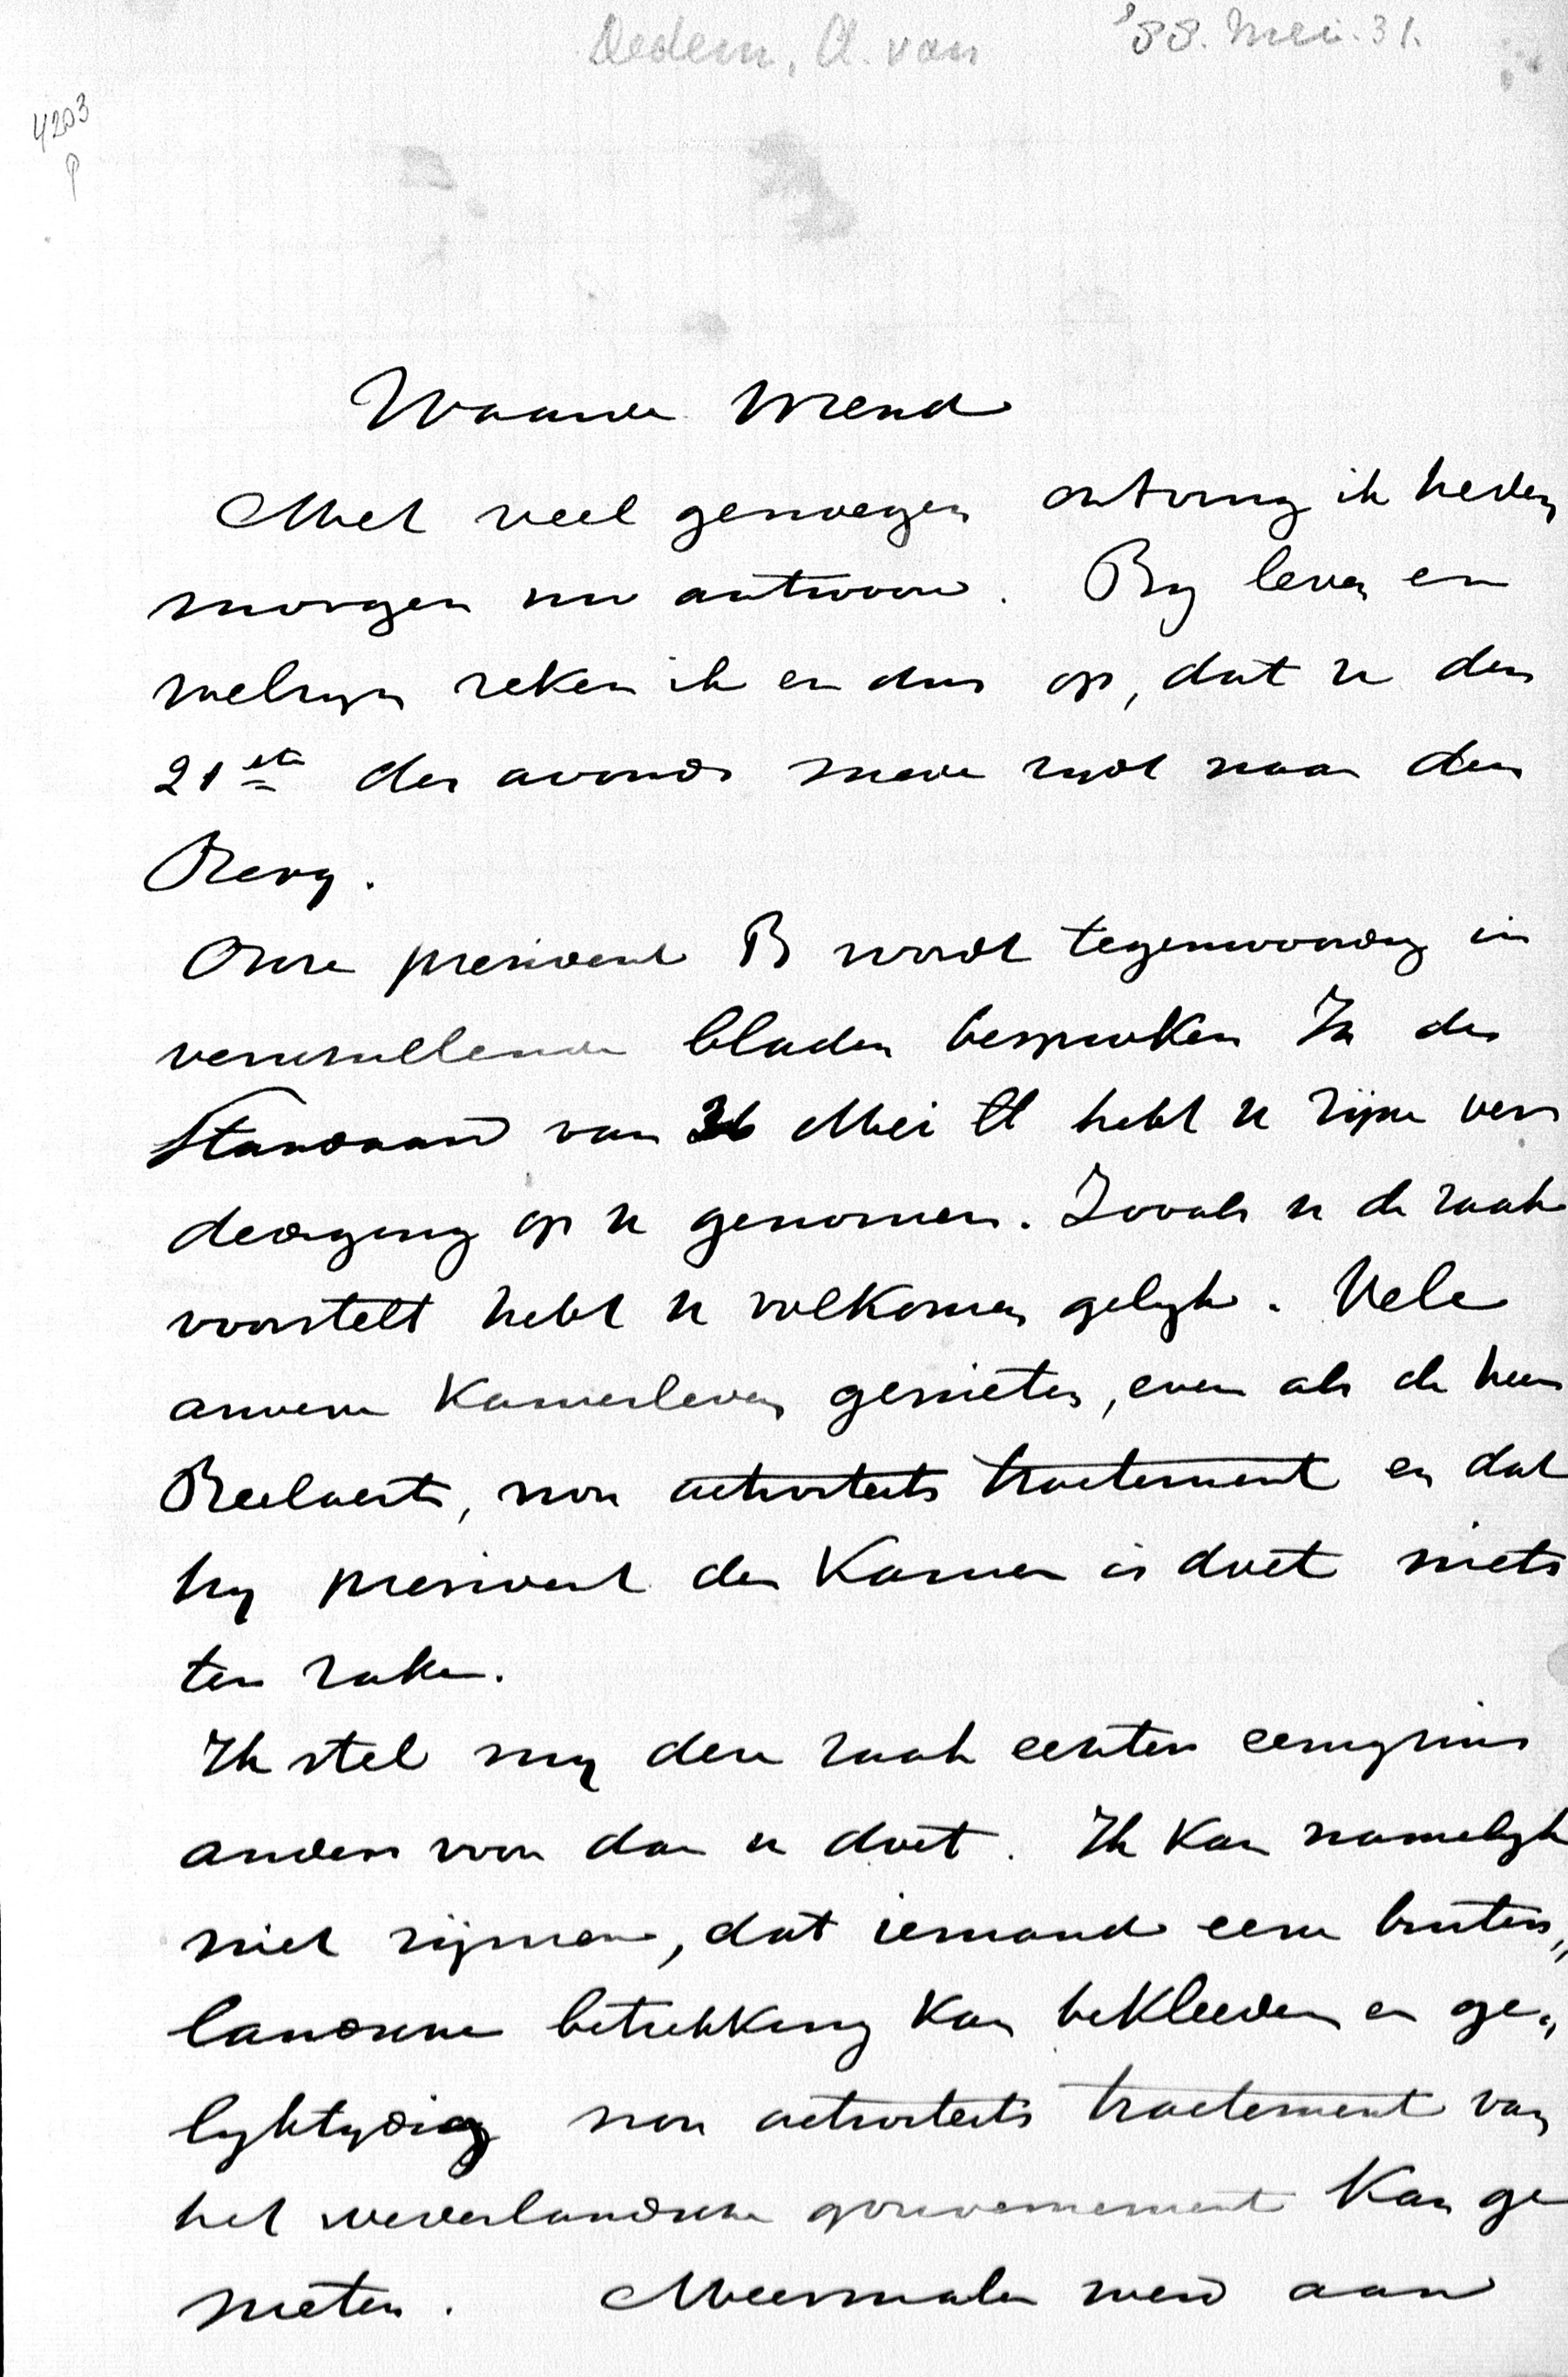 Dedem, A. van '88. Mei. 31.
4203
P
Waarde Vriend
Met veel genoegen ontving ik heden
morgen uw antwoord. By leven en
welzyn reken ik er dus op, dat u den
21ste des avonds mede rydt naar den
Berg.
Onze president B wordt tegenwoordig in
verschillende bladen besproken In de
Standaard van 26 Mei ll hebt u zijne ver
dediging op u genomen. Zooals u de zaak
voorstelt hebt u volkomen gelyk. Vele
andere Kamerleden genieten, even als de heer
Beelaerts, non activiteits tractement en dat
hy president der Kamer is doet niets
ter zake.
Ik stel my deze zaak echter eenigzins
anders voor dan u doet. Ik kan namelyk
niet rijmen, dat iemand eene buiten„
landsche betrekking kan bekleeden en ge„
lyktydig non activiteits tractement van
het nederlandsche gouvernement kan ge
nieten. Meermalen werd aan